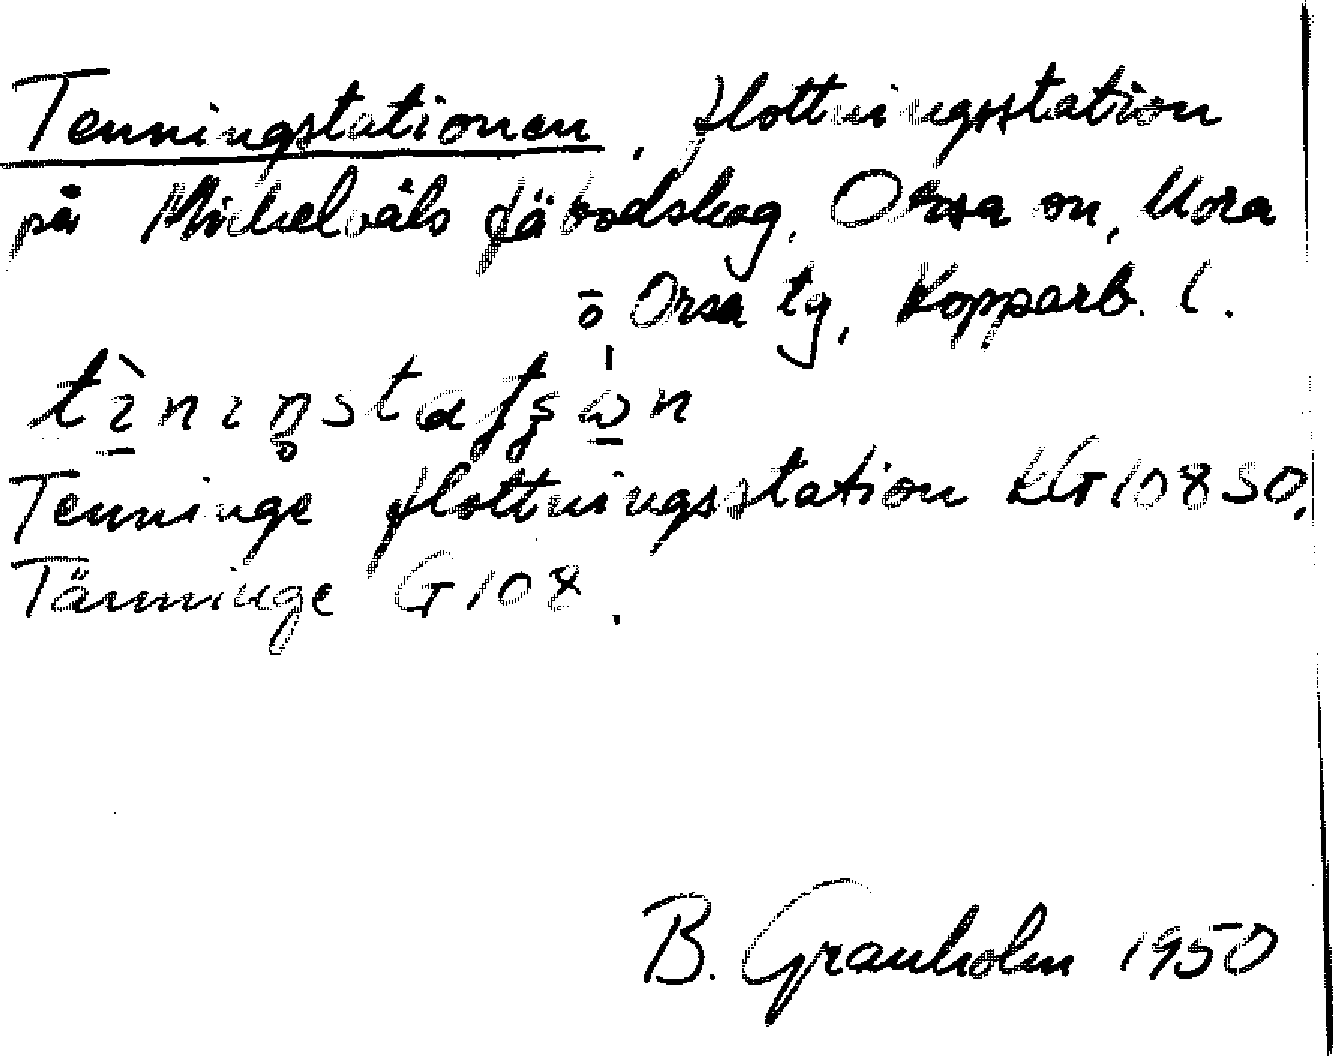 Tenningstationen, flottningsstation
på Mickelvåls fäbodskog, Orsa sn, Mora
o Orsa tg, Kopparb. l.
Tenninge flottningsstation KG 108 SO,
Tänninge G 108.
B. Granholm 1950